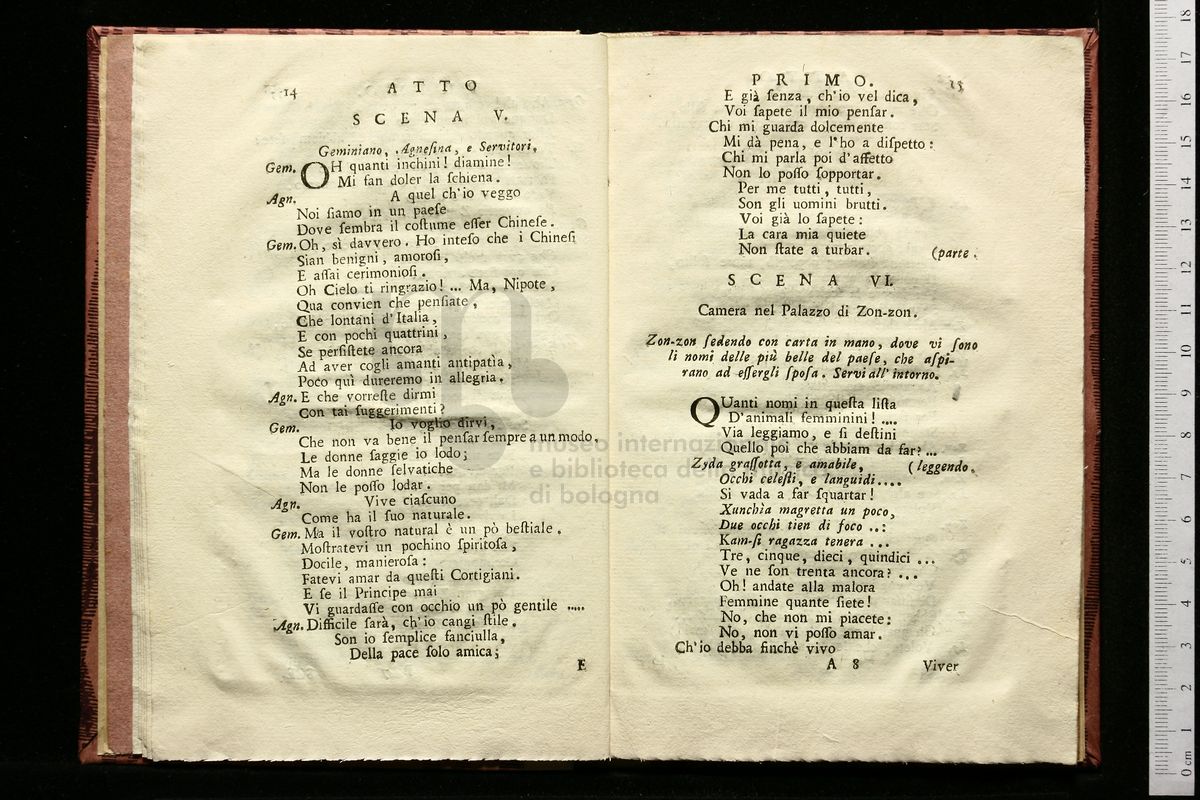 14
ATTO
SCENA V.
Geminiano, Agneſina, e Servitori.
Gem. OH quanti inchini! diamine!
Mi fan doler la ſchiena.
Agn. A quel ch'io veggo
Noi ſiamo in un paeſe
Dove ſembra il coſtume eſſer Chineſe.
Gem. Oh, sì davvero. Ho inteſo che i Chineſi
Sian benigni, amoroſi,
E aſſai cerimonioſi.
Oh Cielo ti ringrazio! ... Ma, Nipote,
Qua convien che penſiate,
Che lontani d'Italia,
E con pochi quattrini,
Se perſiſtete ancora
Ad aver cogli amanti antipatìa,
Poco quì dureremo in allegria.
Agn. E che vorreſte dirmi
Con tai ſuggerimenti?
Gem. Io voglio dirvi,
Che non va bene il penſar ſempre a un modo.
Le donne ſaggie io lodo;
Ma le donne ſelvatiche
Non le poſſo lodar.
Agn. Vive ciaſcuno
Come ha il ſuo naturale.
Gem. Ma il voſtro natural è un pò beſtiale.
Moſtratevi un pochino ſpiritoſa,
Docile, manieroſa:
Fatevi amar da queſti Cortigiani.
E ſe il Principe mai
Vi guardaſſe con occhio un pò gentile .....
Agn. Difficile ſarà, ch'io cangi ſtile.
Son io ſemplice fanciulla,
Della pace ſolo amica;
E
PRIMO.
15
E già ſenza, ch'io vel dica,
Voi ſapete il mio penſar.
Chi mi guarda dolcemente
Mi dà pena, e l'ho a diſpetto:
Chi mi parla poi d'affetto
Non lo poſſo ſopportar.
Per me tutti, tutti,
Son gli uomini brutti.
Voi già lo ſapete:
La cara mia quiete
Non ſtate a turbar.
(parte.
SCENA VI.
Camera nel Palazzo di Zon-zon.
Zon-zon ſedendo con carta in mano, dove vi ſono
li nomi delle più belle del paeſe, che aſpi-
rano ad eſſergli ſpoſa. Servi all'intorno.
QUanti nomi in queſta liſta
D'animali femminini! ....
Via leggiamo, e ſi deſtini
Quello poi che abbiam da far? ...
Zyda graſſotta, e amabile, (leggendo.
Occhi celeſti, e languidi....
Si vada a far ſquartar!
Xunchìa magretta un poco,
Due occhi tien di foco ..:
Kam-ſi ragazza tenera ...
Tre, cinque, dieci, quindici ...
Ve ne ſon trenta ancora? ...
Oh! andate alla malora
Femmine quante ſiete!
No, che non mi piacete:
No, non vi poſſo amar.
Ch'io debba finchè vivo
A 8
Viver
museo internazi
e biblioteca de
di bologna